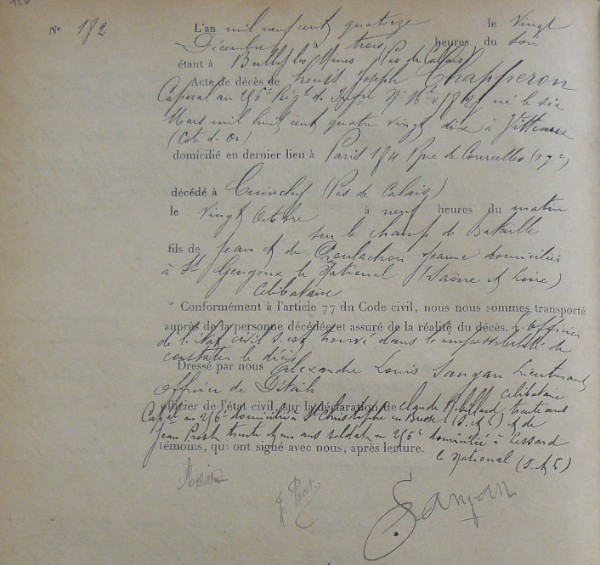 No 182
L'an mil neuf cent quatorze le Vingt
Décembre à trois heures du soir
étant à Bully les Mines Pas de Calais
Acte de décès de Louis Joseph Chapperon
Caporal au 256e Régt de né le six
Mars mil huit cent quatre vingt dix à Vitteaux
(Cote d'Or)
domicilié en dernier lieu à Paris 184 Rue de Courcelles (17e)
décédé à Cuinchy (Pas de Calais)
le Vingt Octobre à neuf heures du matin
sur le champ de Bataille
fils de Jean et de Jeanne domiciliés
à St Gengoux le National (Saône et Loire)
célibataire
Conformément à l'article 77 du Code civil, nous nous sommes transporté
auprès de la personne décédée et assuré de la réalité du décès. L'officier
de l'état civil s'est trouvé dans l'impossibilité de
constater le décès
Dressé par nous Alexandre Louis Sangan Lieutenant
Officier de Détails célibataire
officier de l'état civil, sur la déclaration de Claude trente ans
au 256e domicilié à St Christophe en Bresse (S. et L) et de
Jean trente et un ans soldat au 256e domicilié à
témoins, qui ont signé avec nous, après lecture.
le National (S. et L)
Sangan